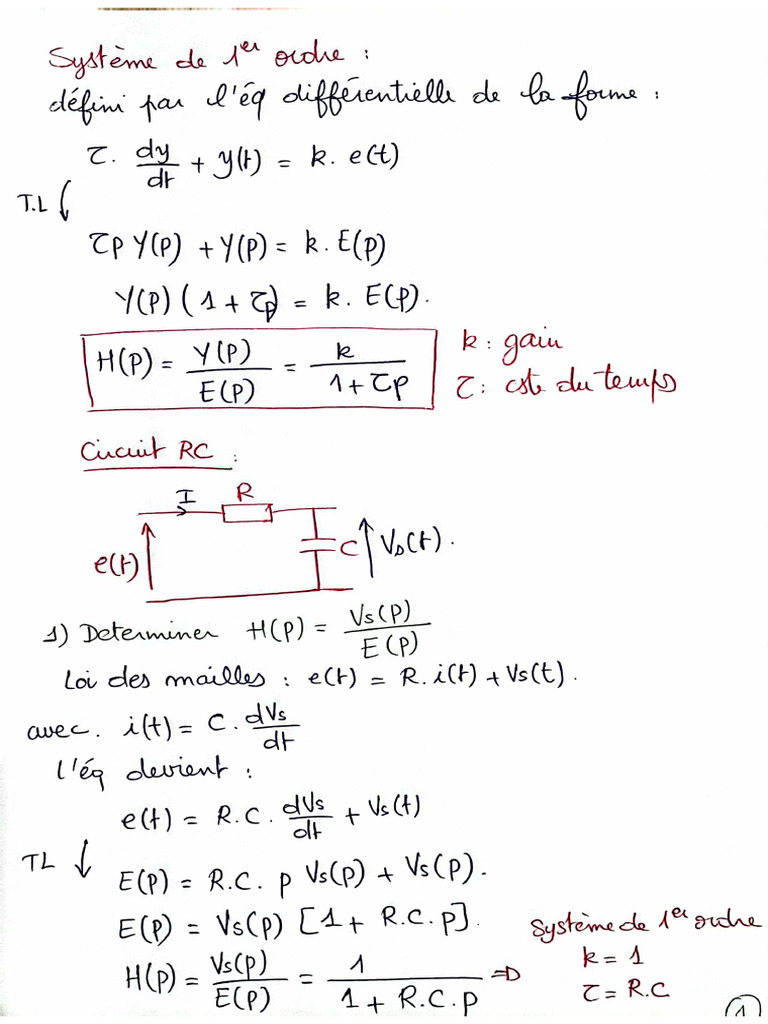 Système de 1er ordre :
défini par l'éq différentielle de la forme :
τ. dy/dt + y(t) = k. e(t)
T.L
τp Y(p) + Y(p) = k. E(p)
Y(p) (1 + τp) = k. E(p).
H(p) = Y(p)/E(p) = k/(1 + τp)
k : gain
τ : cste du temps
Circuit RC :
I R
e(t) C Vs(t).
1) Determiner H(p) = Vs(p)/E(p)
Loi des mailles : e(t) = R. i(t) + Vs(t).
avec. i(t) = C. dVs/dt
l'éq devient :
e(t) = R.C. dVs/dt + Vs(t)
TL
E(p) = R.C. p Vs(p) + Vs(p).
E(p) = Vs(p) [1 + R.C.p].
H(p) = Vs(p)/E(p) = 1/(1 + R.C.p) ⇒
Système de 1er ordre
k = 1
τ = R.C
1